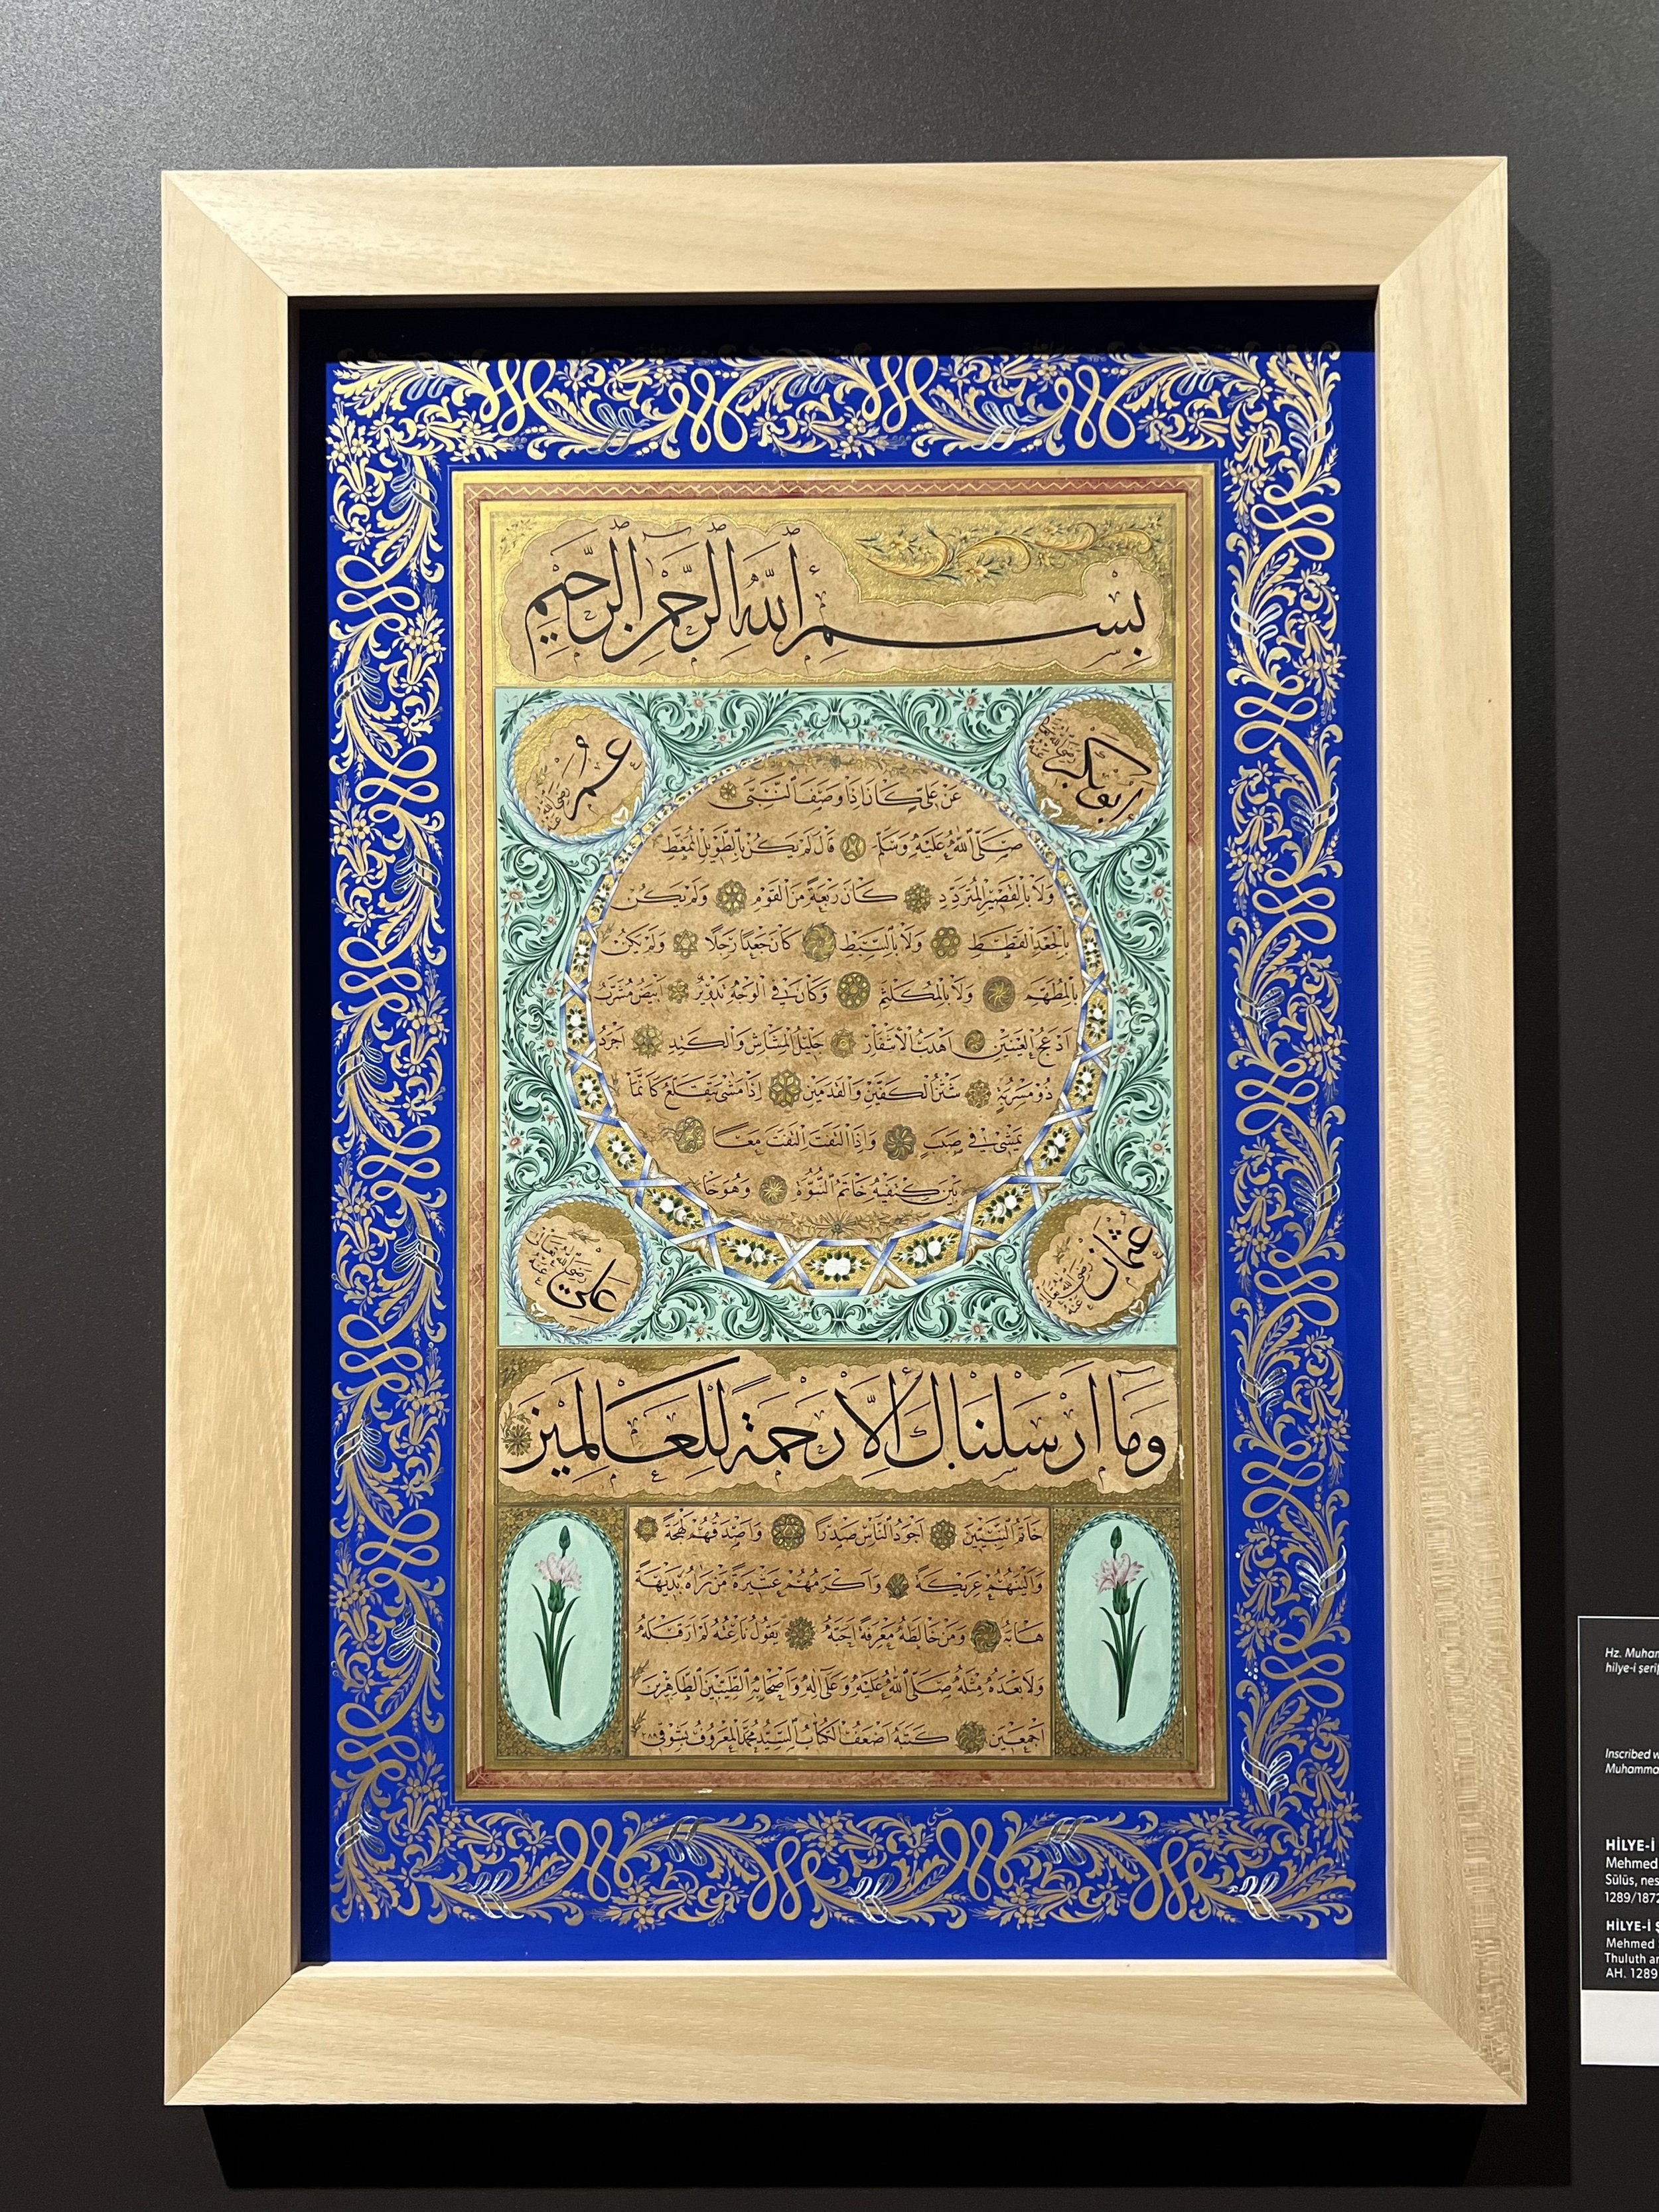 بسم الله الرحمن الرحيم
ابوبكر رضى الله تعالى عنه
عمر رضى الله عنه
عن على كان اذا وصف النبى
صلى الله عليه وسلم قال لم يكن بالطويل الممغط
ولا بالقصير المتردد كان ربعة من القوم ولم يكن
بالجعد القطط ولا بالسبط كان جعدا رجلا ولم يكن
بالمطهم ولا بالمكلثم وكان فى الوجه تدوير ابيض مشرب
ادعج العينين اهدب الاشفار جليل المشاش والكتد اجرد
ذو مسربة شثن الكفين والقدمين اذا مشى يتقلع كانما
يمشى فى صبب واذا التفت التفت معا
بين كتفيه خاتم النبوة وهو خا
عثمان رضى الله تعالى عنه
على رضى الله تعالى عنه
وما ارسلناك الا رحمة للعالمين
خاتم النبيين اجود الناس صدرا واصدقهم لهجة
والينهم عريكة واكرمهم عشيرة من راه بديهة
هابه ومن خالطه معرفة احبه يقول ناعته لم ار قبله
ولا بعده مثله صلى الله عليه وعلى اله واصحابه الطيبين الطاهرين
اجمعين كتبه اضعف الكتاب السيد محمد المعروف بشوقى
Hz. Muham
hilye-i şerif
Inscribed w
Muhamma
HİLYE-İ
Mehmed
Sülüs, nes
1289/1872
HİLYE-İ Ş
Mehmed
Thuluth an
AH. 1289